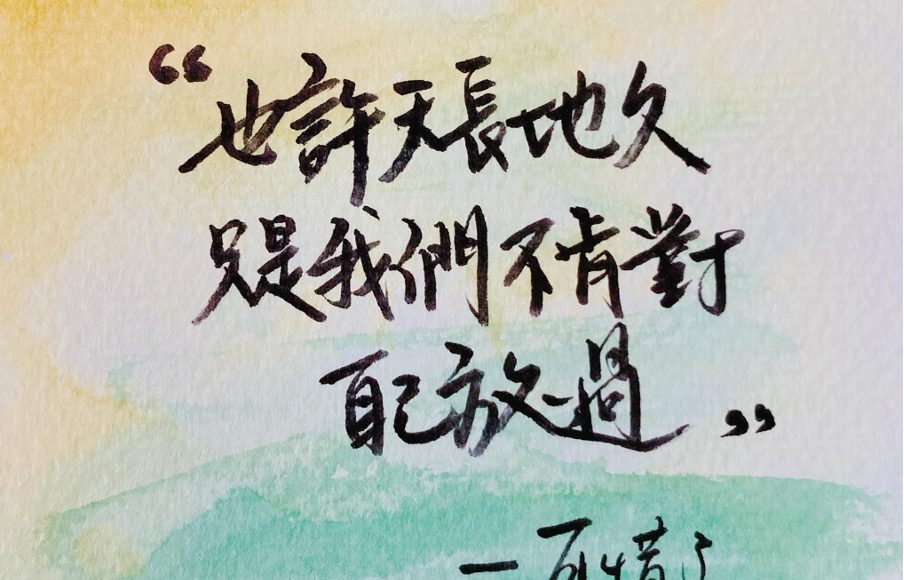 “也許天長地久
只是我們不肯對
自己放過”
一可惜了